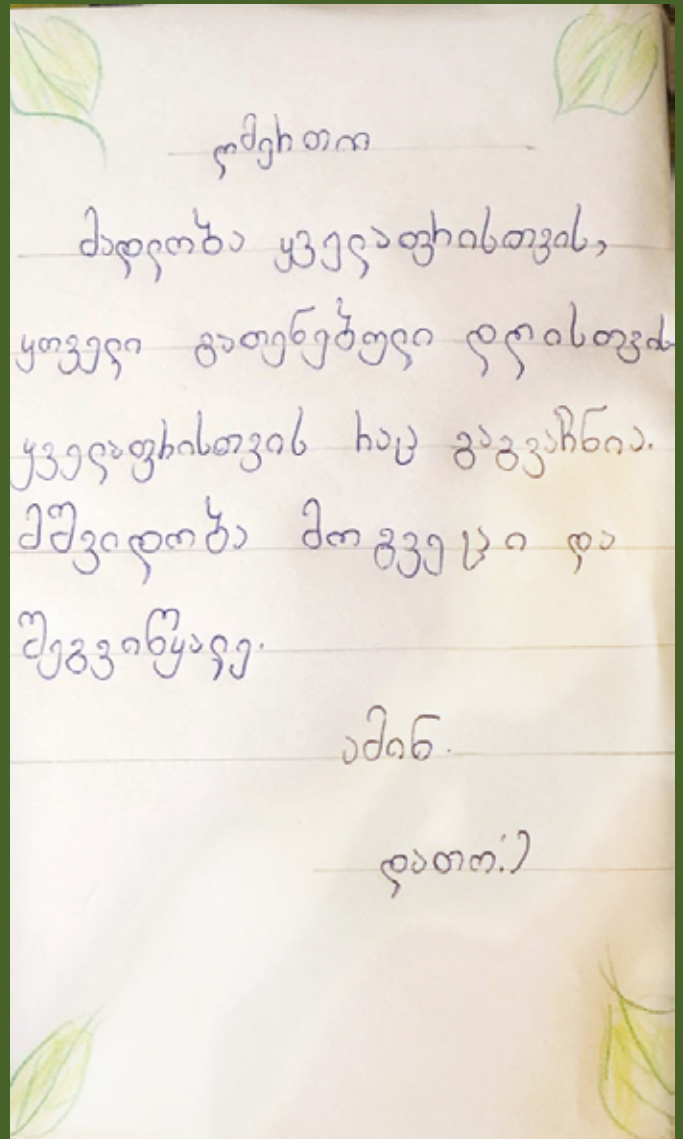 ღმერთო
მადლობა ყველაფრისთვის,
ყოველი გათენებული დღისთვის
ყველაფრისთვის რაც გაგვაჩნია.
მშვიდობა მოგვეცი და
შეგვიწყალე.
ამინ.
დათო:)